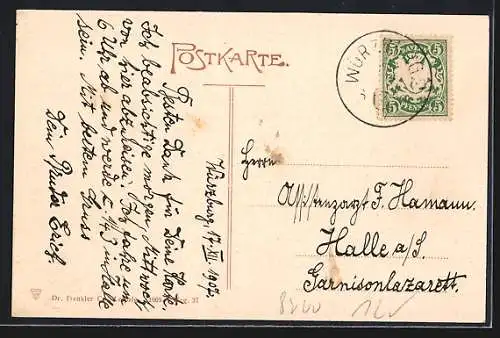 POSTKARTE.
WÜRZ
BAYERN
5 5
PFENNIG
5 5
Würzburg, 17. XII. 1907.
Besten Dank für Deine Karte.
Ich beabsichtige morgen, Mittwoch
von hier abzureisen. Ich fahre um
6 Uhr ab und werde c. ½3 in Halle
sein. Mit bestem Gruss
Dein Bruder Erich.
Herrn
Assistenzarzt F. Hamann.
Halle a/S.
Garnisonlazarett.
Dr. Trenkler
37